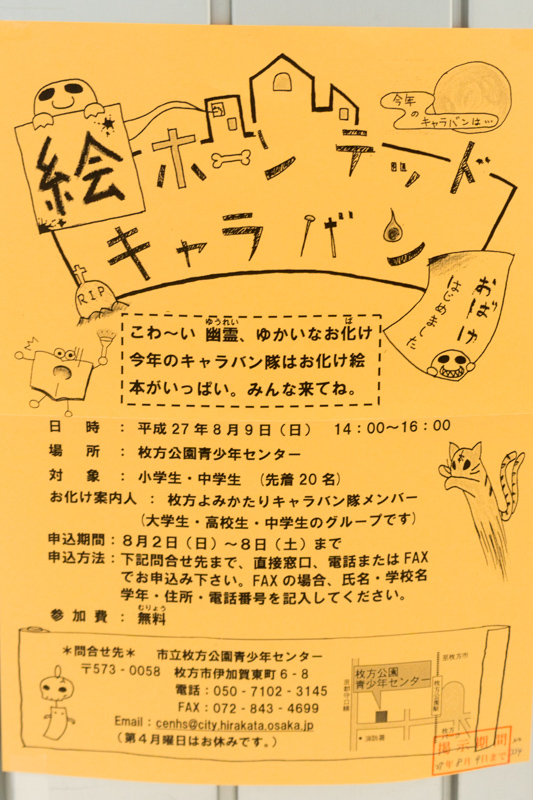 今年
の
キャラバンは…
絵ホーンテッド
キャラバン
RIP
おばけ
はじめました
こわ～い 幽霊、ゆかいなお化け
ゆうれい
ば
今年のキャラバン隊はお化け絵
本がいっぱい。みんな来てね。
日　時 ： 平成27年8月9日（日） 14：00～16：00
場　所 ： 枚方公園青少年センター
対　象 ： 小学生・中学生 （先着20名）
お化け案内人 ： 枚方よみかたりキャラバン隊メンバー
（大学生・高校生・中学生のグループです）
申込期間：8月2日（日）～8日（土）まで
申込方法：下記問合せ先まで、直接窓口、電話またはFAX
でお申込み下さい。FAXの場合、氏名・学校名
学年・住所・電話番号を記入してください。
むりょう
参加費：無料
＊問合せ先＊ 市立枚方公園青少年センター
〒573-0058 枚方市伊加賀東町6-8
電話：050-7102-3145
FAX：072-843-4699
Email：cenhs@city.hirakata.osaka.jp
（第4月曜日はお休みです。）
至枚方市
枚方公園
青少年センター
京都守口線
枚方公園駅
消防署
掲示期間